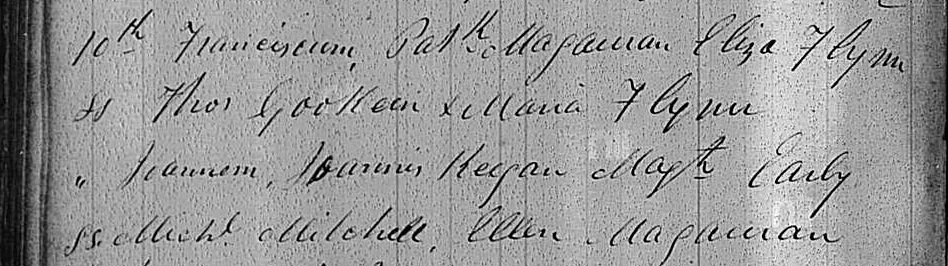 10th Franciscum, Patk Magauran Eliza Flynn
ss Thos Gookein & Maria Flynn
" Joannem, Joannis Keegan Magt Early
ss Michl Mitchell, Ellen Magauran